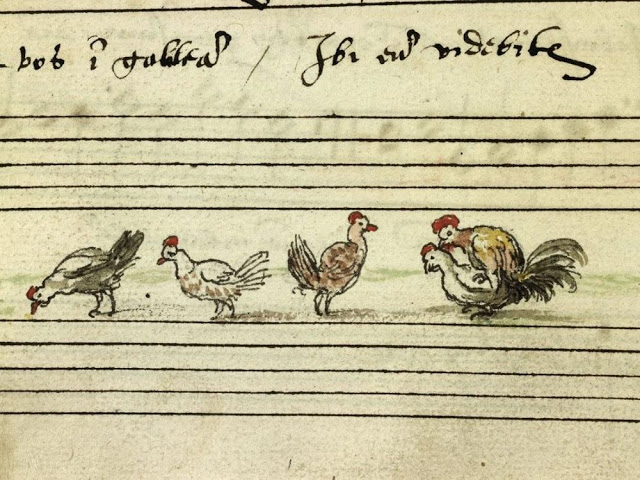 vos ī galileā / Ibi eū videbitꝭ